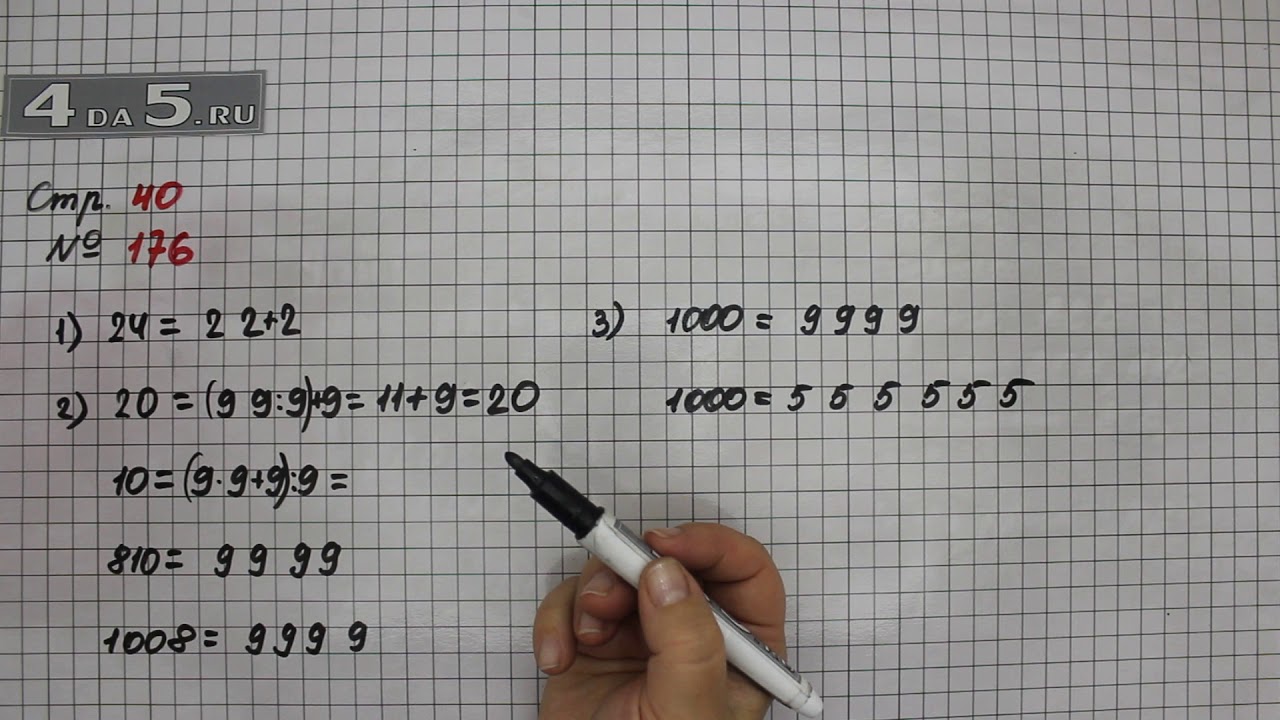 4DA5.RU
Стр. 40
№ 176
1) 24 = 2 2+2
2) 20 = (9 9:9)+9 = 11+9=20
10=(9·9+9):9 =
810= 9 9 9 9
1008= 9 9 9 9
3) 1000 = 9 9 9 9
1000 = 5 5 5 5 5 5